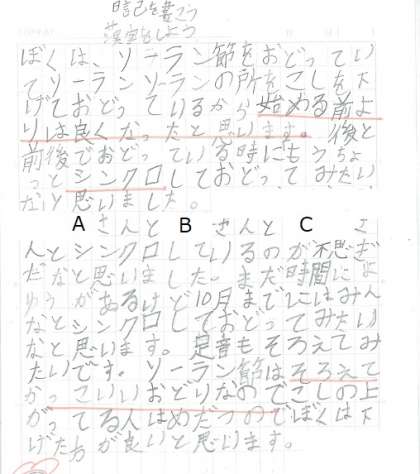 を書こう
をしよう
ぼくは、ソーラン節をおどってい
てソーランソーランの所をこしを下
げておどっているから始める前よ
りは良くなったと思います。後と
前後でおどっている時にもうちょ
っとシンクロしておどってみたい
なと思いました。
A さんと B さんと C さ
んとシンクロしているのが不思ぎ
だなと思いました。まだ時間によ
ゆうがあるけど10月までにはみん
なとシンクロしておどってみたい
なと思います。足音もそろえてみ
たいです。ソーラン節はそろえて
かっこいいおどりなのでこしの上
がってる人はめだつのでぼくは下
げた方が良いと思います。